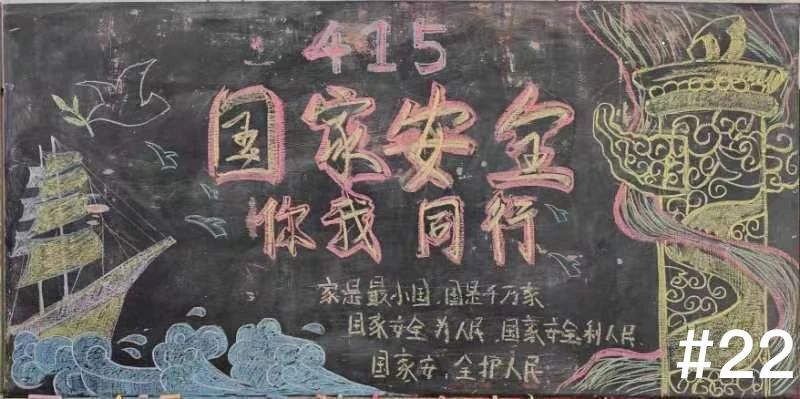 415
国家安全
你我同行
家是最小国,国是千万家
国家安全为人民 国家安全利人民
国家安,全护人民
#22